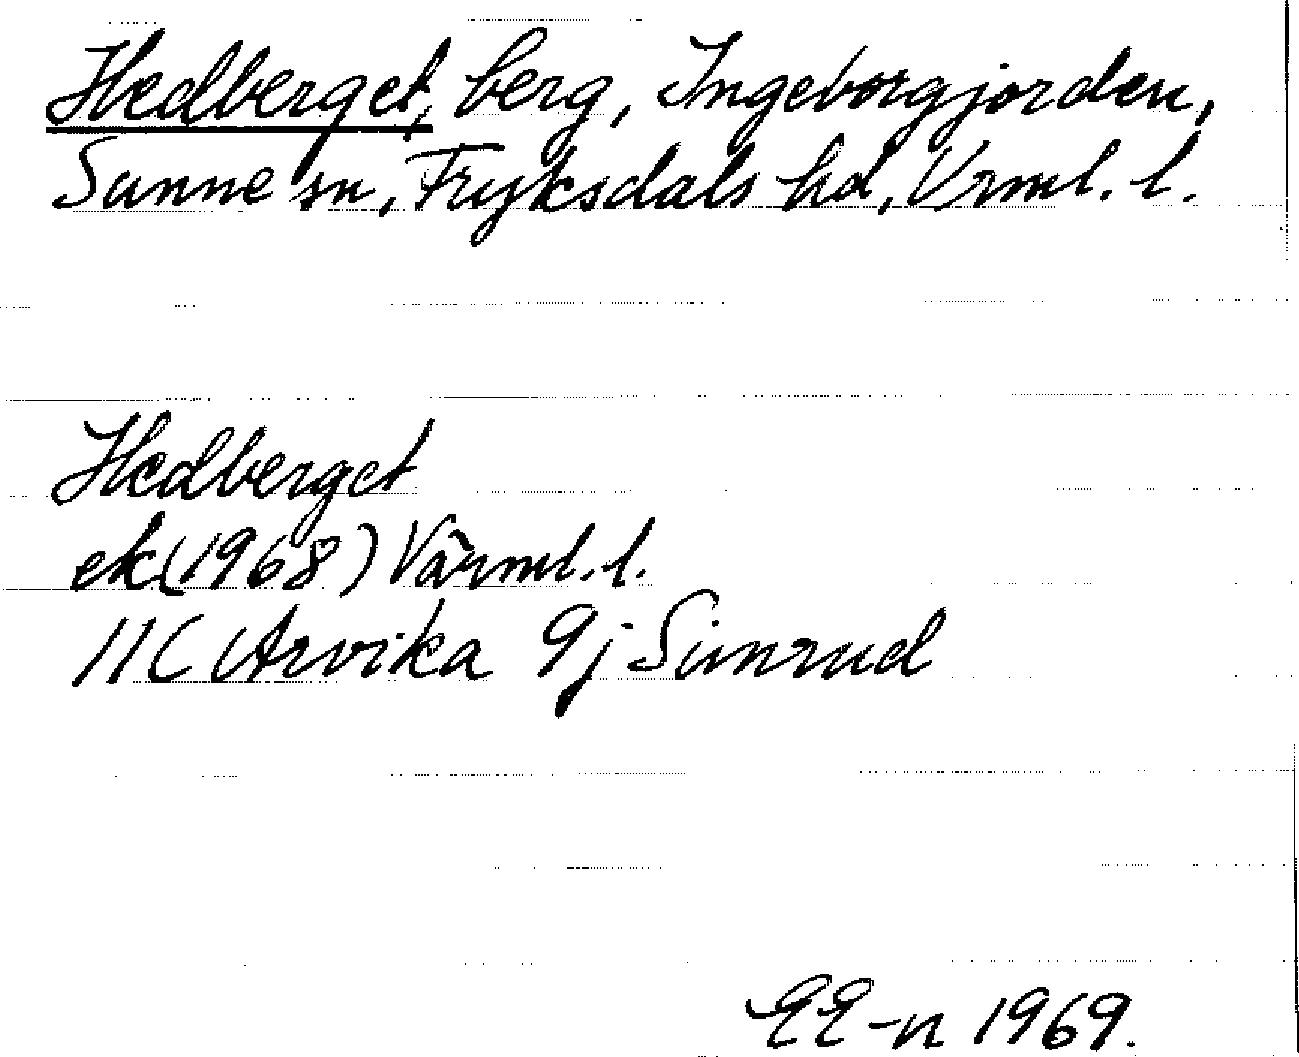 Hedberget, berg, Ingeborgjorden,
Sunne sn, Fryksdals hd, Vrml. l.
Hedberget
ek (1968) Värml. l.
11C Arvika 9j Simrud
EE-n 1969.